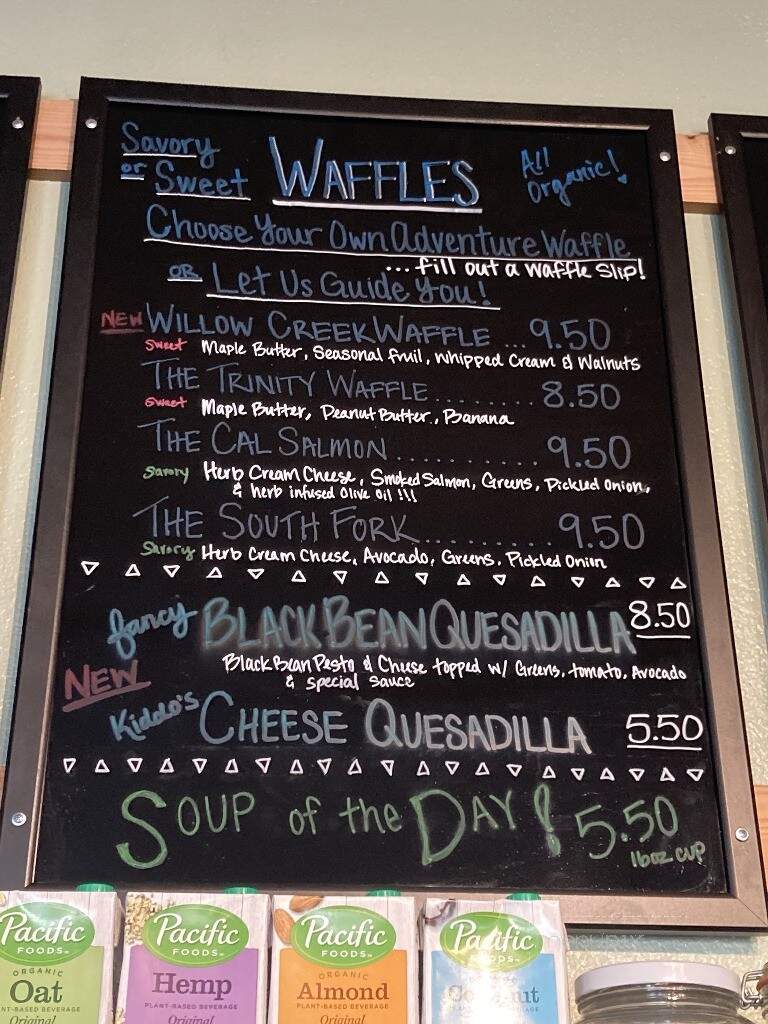 Savory
or Sweet WAFFLES
All Organic!
Choose Your Own Adventure Waffle
... fill out a waffle slip!
OR Let Us Guide You!
NEW WILLOW CREEK WAFFLE ... 9.50
Sweet Maple Butter, Seasonal fruit, whipped Cream & Walnuts
THE TRINITY WAFFLE ........ 8.50
Sweet Maple Butter, Peanut Butter, Banana
THE CAL SALMON .......... 9.50
Savory Herb Cream Cheese, Smoked Salmon, Greens, Pickled Onion,
& herb infused Olive Oil !!!
THE SOUTH FORK ......... 9.50
Savory Herb Cream Cheese, Avocado, Greens, Pickled Onion
fancy BLACK BEAN QUESADILLA 8.50
Black Bean Pesto & Cheese topped w/ Greens, tomato, Avocado
& special sauce
NEW
Kiddo's CHEESE QUESADILLA 5.50
SOUP of the DAY! 5.50
16oz cup
Pacific FOODS
ORGANIC
Oat
PLANT-BASED BEVERAGE
Original
Pacific FOODS
Hemp
PLANT-BASED BEVERAGE
Original
Pacific FOODS
ORGANIC
Almond
PLANT-BASED BEVERAGE
Original
Pacific FOODS
Coconut
PLANT-BASED BEVERAGE
Original